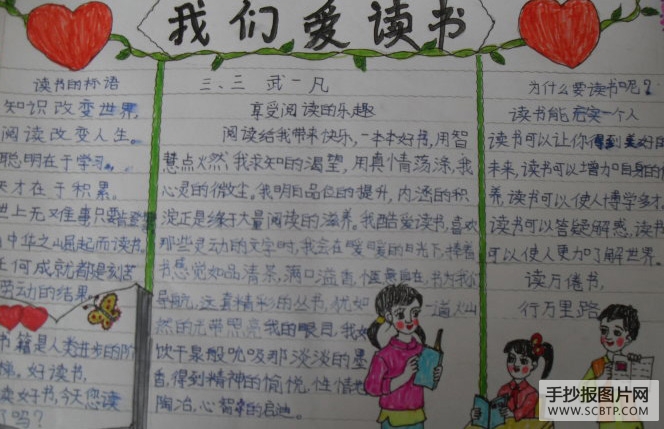 我们爱读书
读书的标语
知识改变世界,
阅读改变人生。
聪明在于学习,
天才在于积累。
世上无难事只
中华之崛起而读书
任何成就都是刻苦
劳动的结果
书籍是人类进步的阶
梯。好读书,
读好书,今天您读
了吗?
三、三 武一凡
享受阅读的乐趣
阅读给我带来快乐,一本本好书,用智
慧点燃我求知的渴望,用真情荡涤我
心灵的微尘。我明白品位的提升,内涵的积
淀正是缘于大量阅读的滋养。我酷爱读书,喜欢
那些灵动的文字时,我会在暖暖的日光下,捧着
书感觉如品清茶,满口溢香,惬意自在,书为我
导航,这套精彩的丛书,犹如一道灿
然的光带照亮我的眼目,我如
饮干泉般吮吸那淡淡的墨
香,得到精神的愉悦,性情
陶冶,心智的启迪。
为什么要读书呢?
读书能充实一个人
读书可以让你得到美好的
未来,读书可以增加自身的
养,读书可以使人博学多才
读书可以答疑解惑,读书
可以使人更加了解世界。
读万倦书,
行万里路
手抄报图片网
WWW.SCBTP.COM